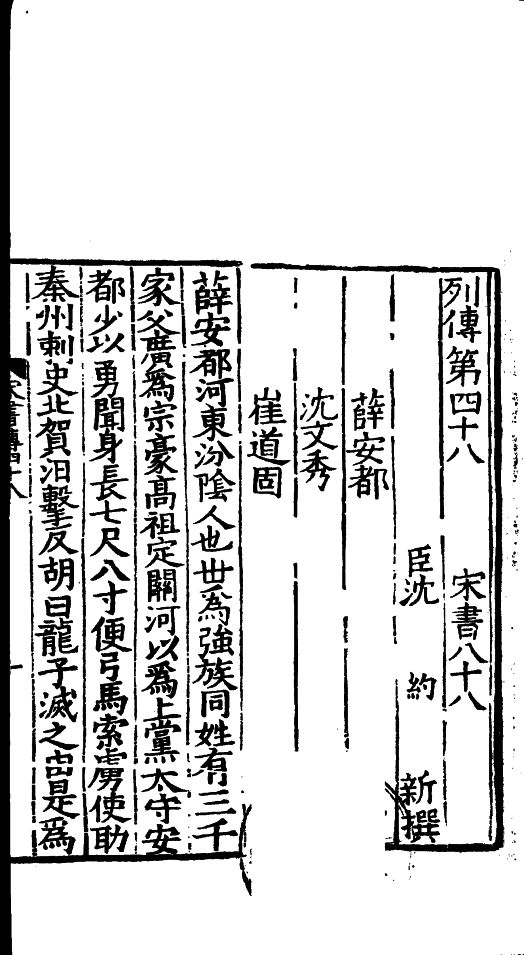 列傳第四十八 宋書八十八
臣沈 約 新撰
薛安都
沈文秀
崔道固
薛安都河東汾陰人也世為強族同姓有三千
家父廣爲宗豪髙祖定關河以爲上黨太守安
都少以勇聞身長七尺八寸便弓馬索虜使助
秦州刺史北賀汨擊反胡白龍子滅之由是爲